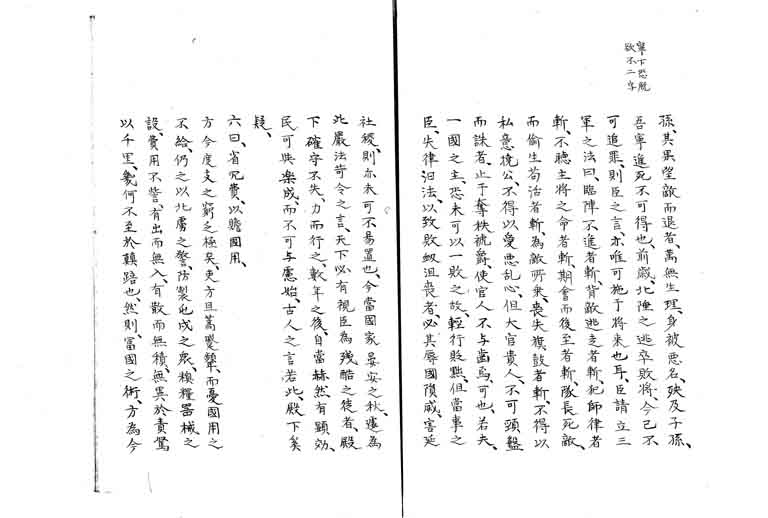 舉下恐脫
欲不二字
孫、其畏望敵而退者、萬無生理、身被惡名、殃及子孫、
吾寧進死不可得也、前歲、北陲之逃卒敗將、今已不
可追罪、則臣之言、亦唯可施于將來也耳、臣請立三
軍之法曰、臨陣不進者斬、背敵逃走者斬、犯師律者
斬、不聽主將之命者斬、期會而後至者斬、隊長死敵、
而偷生苟活者斬、為敵所乘、喪失旗鼓者斬、不得以
私意撓公、不得以愛惡乱心、但大官貴人、不可頭盤
而誅者、止于奪秩褫爵、使官人不与齒焉、可也、若夫、
一國之主、恐未可以一敗之故、輕行敗黜、但當事之
臣、失律沮法、以致敗衂沮喪者、必其辱國隕威、害延
社稷、則亦未可不易置也、今當國家晏安之秋、遽為
此嚴法苛令之言、天下必有視臣為殘酷之徒者、殿
下確守不失、力而行之、數年之後、自當赫然有顯効、
民可與樂成、而不可与慮始、古人之言若此、殿下矣
疑、
六曰、省冗費、以贍國用、
方今度支之窮乏極矣、吏方且蒿嬰顰而憂國用之
不給、仍之以北虜之警、防製屯戍之衆、糗糧器械之
設、費用不訾、有出而無入、有散而無積、無異於責駑
以千里、幾何不至於顛踣也、然則、富國之術、方為今